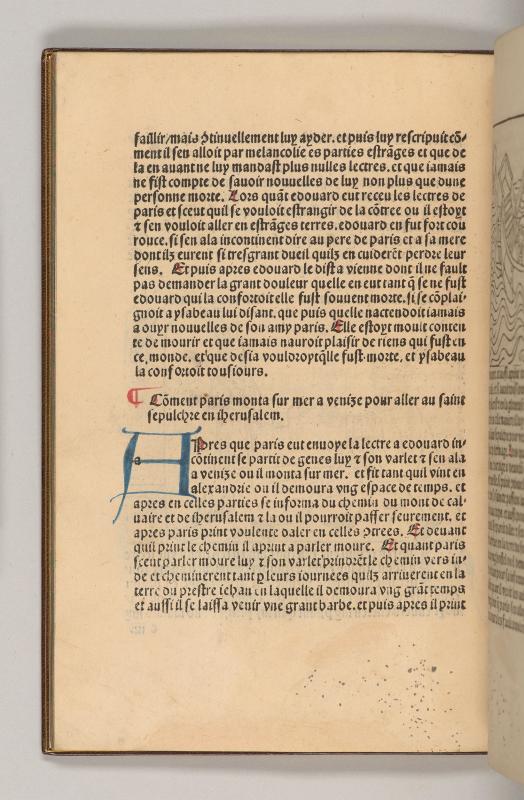 faillir/mais ꝯtinuellement luy ayder. et puis luy rescripuit cō-
ment il sen alloit par melancolie es parties estrāges et que de
la en auant ne luy mandast plus nulles lectres. et que iamais
ne fist compte de sauoir nouuelles de luy non plus que dune
personne morte. Lors quāt edouard eut receu les lectres de
paris et sceut quil se vouloit estrangir de la cōtree ou il estoyt
⁊ sen vouloit aller en estrāges terres. edouard en fut fort cou
rouce. si sen ala incontinent dire au pere de paris et a sa mere
dont ilz eurent si tresgrant dueil quilz en cuiderēt perdre leur
sens. Et puis apres edouard le dist a vienne dont il ne fault
pas demander la grant douleur quelle en eut tant q̄ se ne fust
edouard qui la confortoit elle fust souuent morte. si se cōplai-
gnoit a ysabeau lui disant. que puis quelle nactendoit iamais
a ouyr nouuelles de son amy paris. Elle estoyt moult conten
te de mourir et que iamais nauroit plaisir de riens qui fust en
ce monde. et que desia vouldroyt q̄lle fust morte. et ysabeau
la confortoit tousiours.
¶ Cōment paris monta sur mer a venize pour aller au saint
sepulchre en iherusalem.
APres que paris eut enuoye la lectre a edouard in-
cōtinent se partit de genes luy ⁊ son varlet ⁊ sen ala
a venize ou il monta sur mer. et fit tant quil vint en
alexandrie ou il demoura vng espace de temps. et
apres en celles parties se informa du chemin du mont de cal-
uaire et de iherusalem ⁊ la ou il pourroit passer seurement. et
apres paris print voulente daler en celles ꝯtrees. Et deuant
quil print le chemin il aprint a parler moure. Et quant paris
sceut parler moure luy ⁊ son varlet prindrēt le chemin vers in-
de et cheminerent tant p̲ leurs iournees quilz arriuerent en la
terre du prestre iehan en laquelle il demoura vng grāt temps
et aussi il se laissa venir vne grant barbe. et puis apres il print